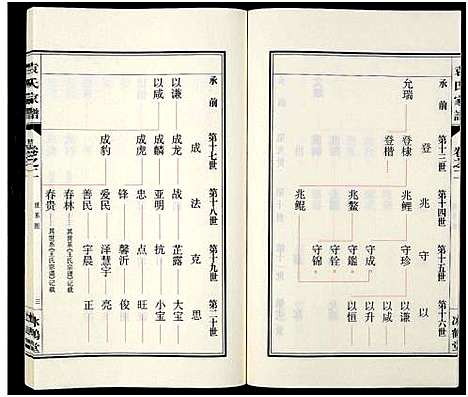 袁氏家谱
卷之二
承前
第十三世
第十四世
第十五世
第十六世
允瑞
登
兆
守
以
登棣
登楷
兆鲤
兆鳌
兆鲲
守珍
守成
守鑑
守铨
守锦
以谦
以咸
以升
以恒
冰鹤堂
承前
第十七世
第十八世
第十九世
第二十世
成
法
克
思
以谦
以咸
成龙
成麟
成虎
成豹
战
亚明
忠
锋
爱民
善民
春林
春贵
芷露
抗
点
馨沂
洋慧宇
宇晨
大宝
小宝
旺
俊
亮
正
其世系《王氏宗谱》记载
其世系《王氏宗谱》记载
袁氏家谱
世系图
三
冰鹤堂